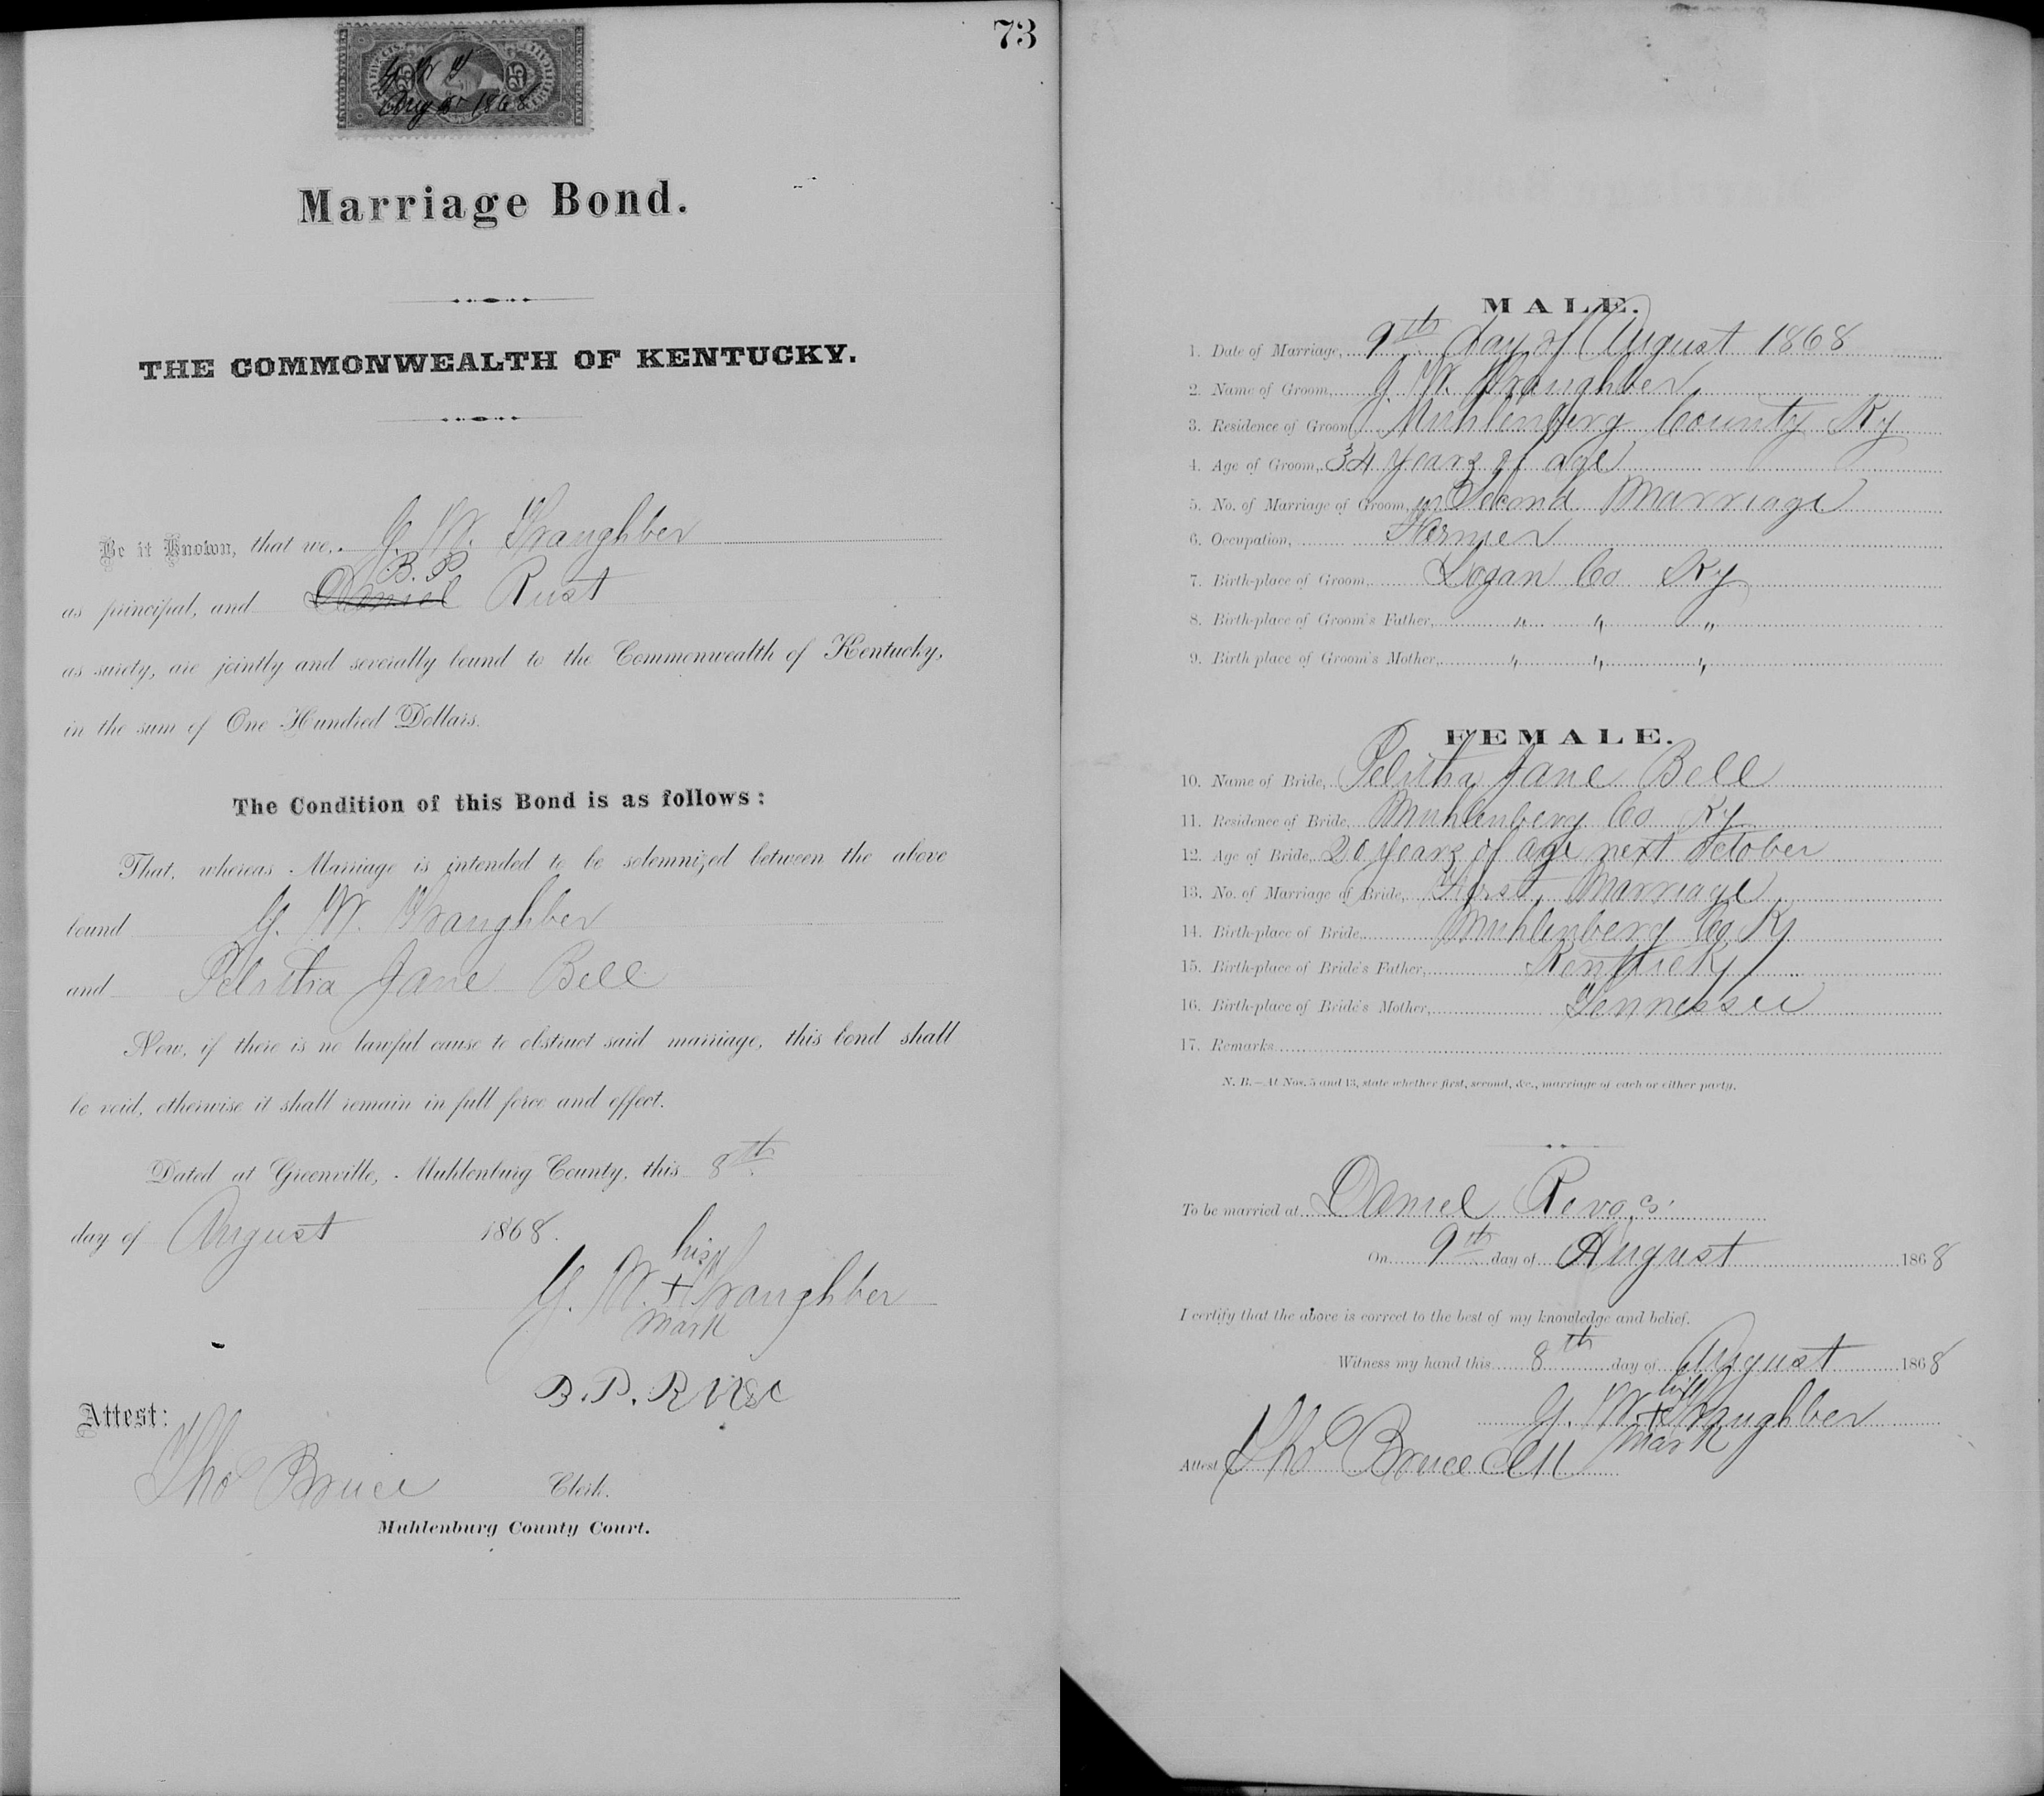 73
25 25
Aug 8 1868
Marriage Bond.
THE COMMONWEALTH OF KENTUCKY.
Be it Known, that we, G. W. Traughber
B. P.
as principal, and Daniel Rust
as surety, are jointly and severally bound to the Commonwealth of Kentucky,
in the sum of One Hundred Dollars.
The Condition of this Bond is as follows:
That, whereas Marriage is intended to be solemnized between the above
bound G. W. Traughber
and Jane Bell
Now, if there is no lawful cause to obstruct said marriage, this bond shall
be void, otherwise it shall remain in full force and effect.
Dated at Greenville, Muhlenburg County, this 8th
day of August 1868.
his
G. W. + Traughber
mark
B. P. Rust
Attest:
Tho Bruce Clerk.
Muhlenburg County Court.
MALE.
1. Date of Marriage, 9th day of August 1868
2. Name of Groom, G. W. Traughber
3. Residence of Groom, Muhlenberg County Ky
4. Age of Groom, 34 years of age
5. No. of Marriage of Groom, Second Marriage
6. Occupation, Farmer
7. Birth-place of Groom, Logan Co Ky
8. Birth-place of Groom's Father, " " "
9. Birth-place of Groom's Mother, " " "
FEMALE.
10. Name of Bride, Jane Bell
11. Residence of Bride, Muhlenberg Co Ky
12. Age of Bride, 20 years of age next October
13. No. of Marriage of Bride, First Marriage
14. Birth-place of Bride, Muhlenberg Co Ky
15. Birth-place of Bride's Father, Kentucky
16. Birth-place of Bride's Mother, Tennessee
17. Remarks
N. B.—At Nos. 5 and 13, state whether first, second, &c., marriage of each or either party.
To be married at Daniel
On 9th day of August 1868
I certify that the above is correct to the best of my knowledge and belief.
Witness my hand this 8th day of August 1868
his
G. W. + Traughber
mark
Attest Tho Bruce Clk